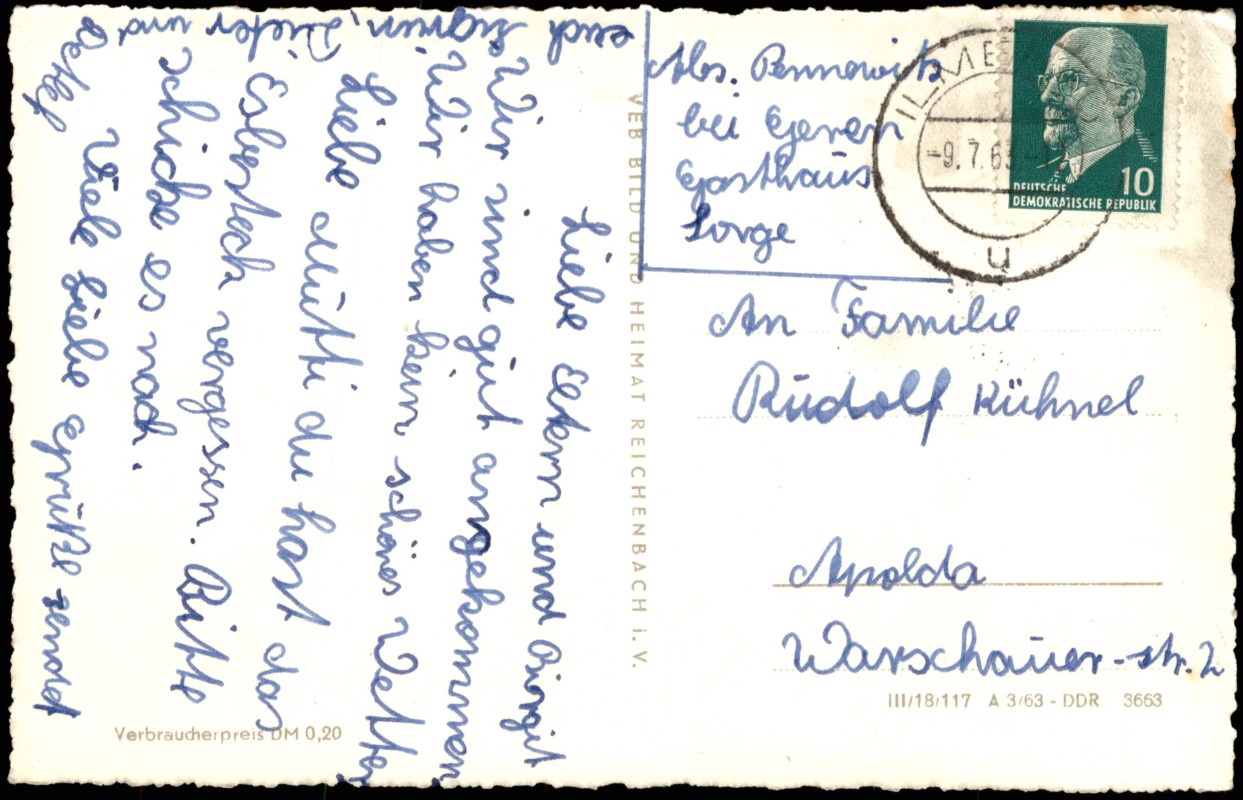 Abs. Pennewitz
bei Geren
Gasthaus
Sorge
ILME
-9.7.63
u
10
DEUTSCHE
DEMOKRATISCHE REPUBLIK
An Familie
Rudolf Kühnel
Apolda
Warschauer-str. 2
III/18/117 A 3/63 - DDR 3663
VEB BILD UND HEIMAT REICHENBACH i. V.
Liebe Eltern und Birgit
Wir sind gut angekommen
Wir haben kein schönes Wetter
Liebe Mutti du hast das
Esbesteck vergessen. Bitte
schicke es nach.
Viele Liebe Grüße sendet
euch Sigrun, Dieter und
Detlef
Verbraucherpreis DM 0,20